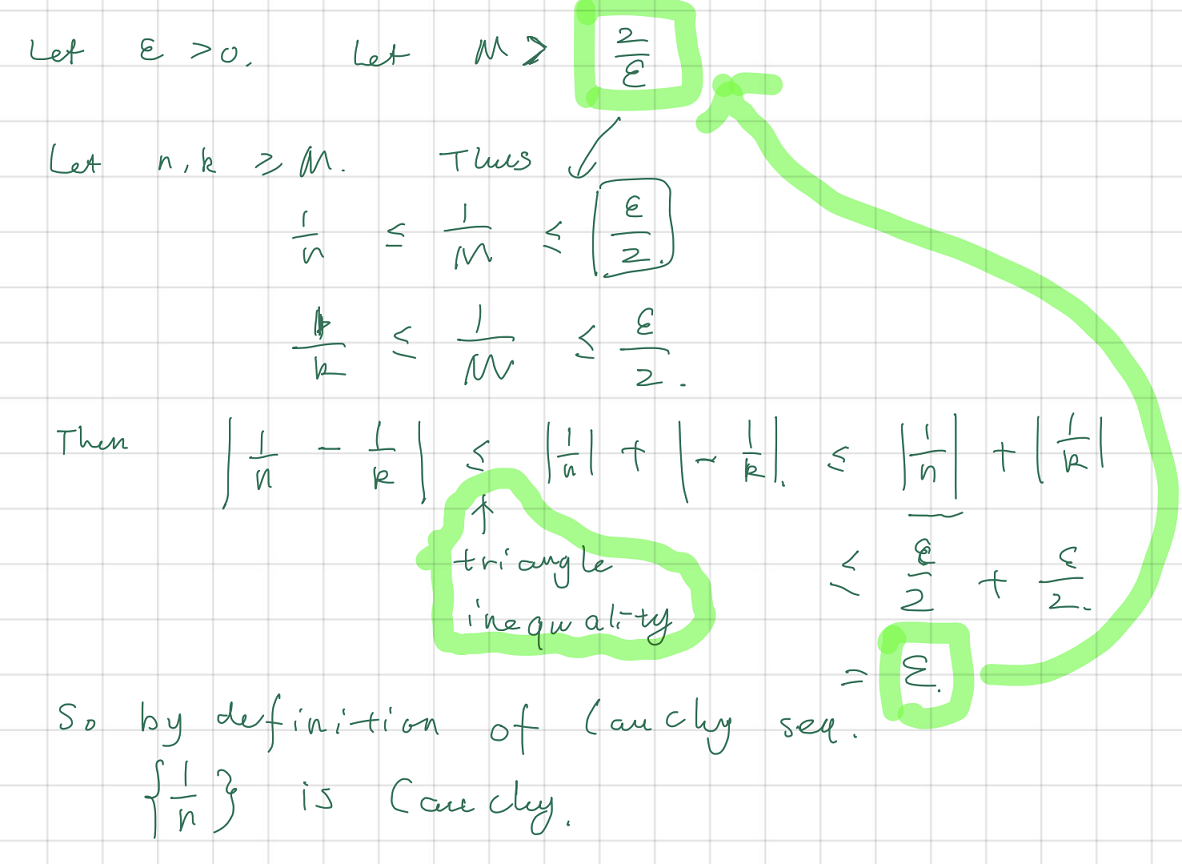 Let ε > 0. Let M > 2/ε
Let n, k ≥ M. Thus
1/n ≤ 1/M ≤ ε/2.
1/k ≤ 1/M ≤ ε/2.
Then |1/n - 1/k| ≤ |1/n| + |- 1/k|. ≤ |1/n| + |1/k|
↑
triangle
inequality
≤ ε/2 + ε/2.
= ε.
So by definition of Cauchy seq.
{1/n} is Cauchy.